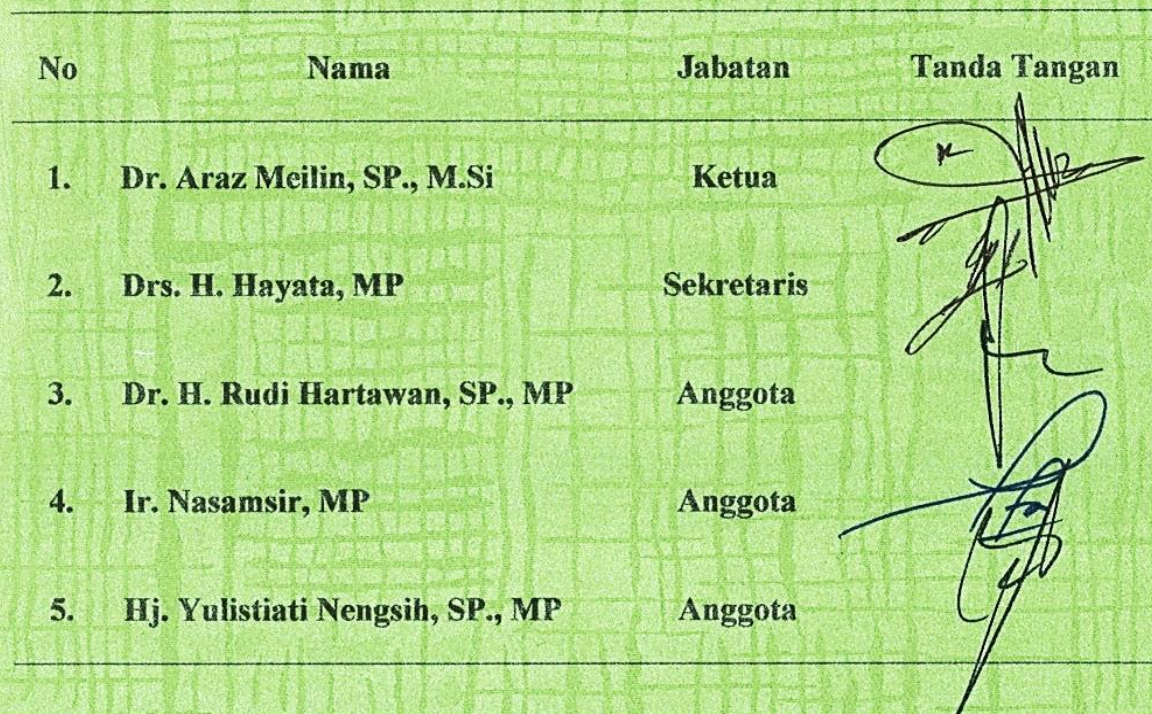 No Nama Jabatan Tanda Tangan
1. Dr. Araz Meilin, SP., M.Si Ketua
2. Drs. H. Hayata, MP Sekretaris
3. Dr. H. Rudi Hartawan, SP., MP Anggota
4. Ir. Nasamsir, MP Anggota
5. Hj. Yulistiati Nengsih, SP., MP Anggota